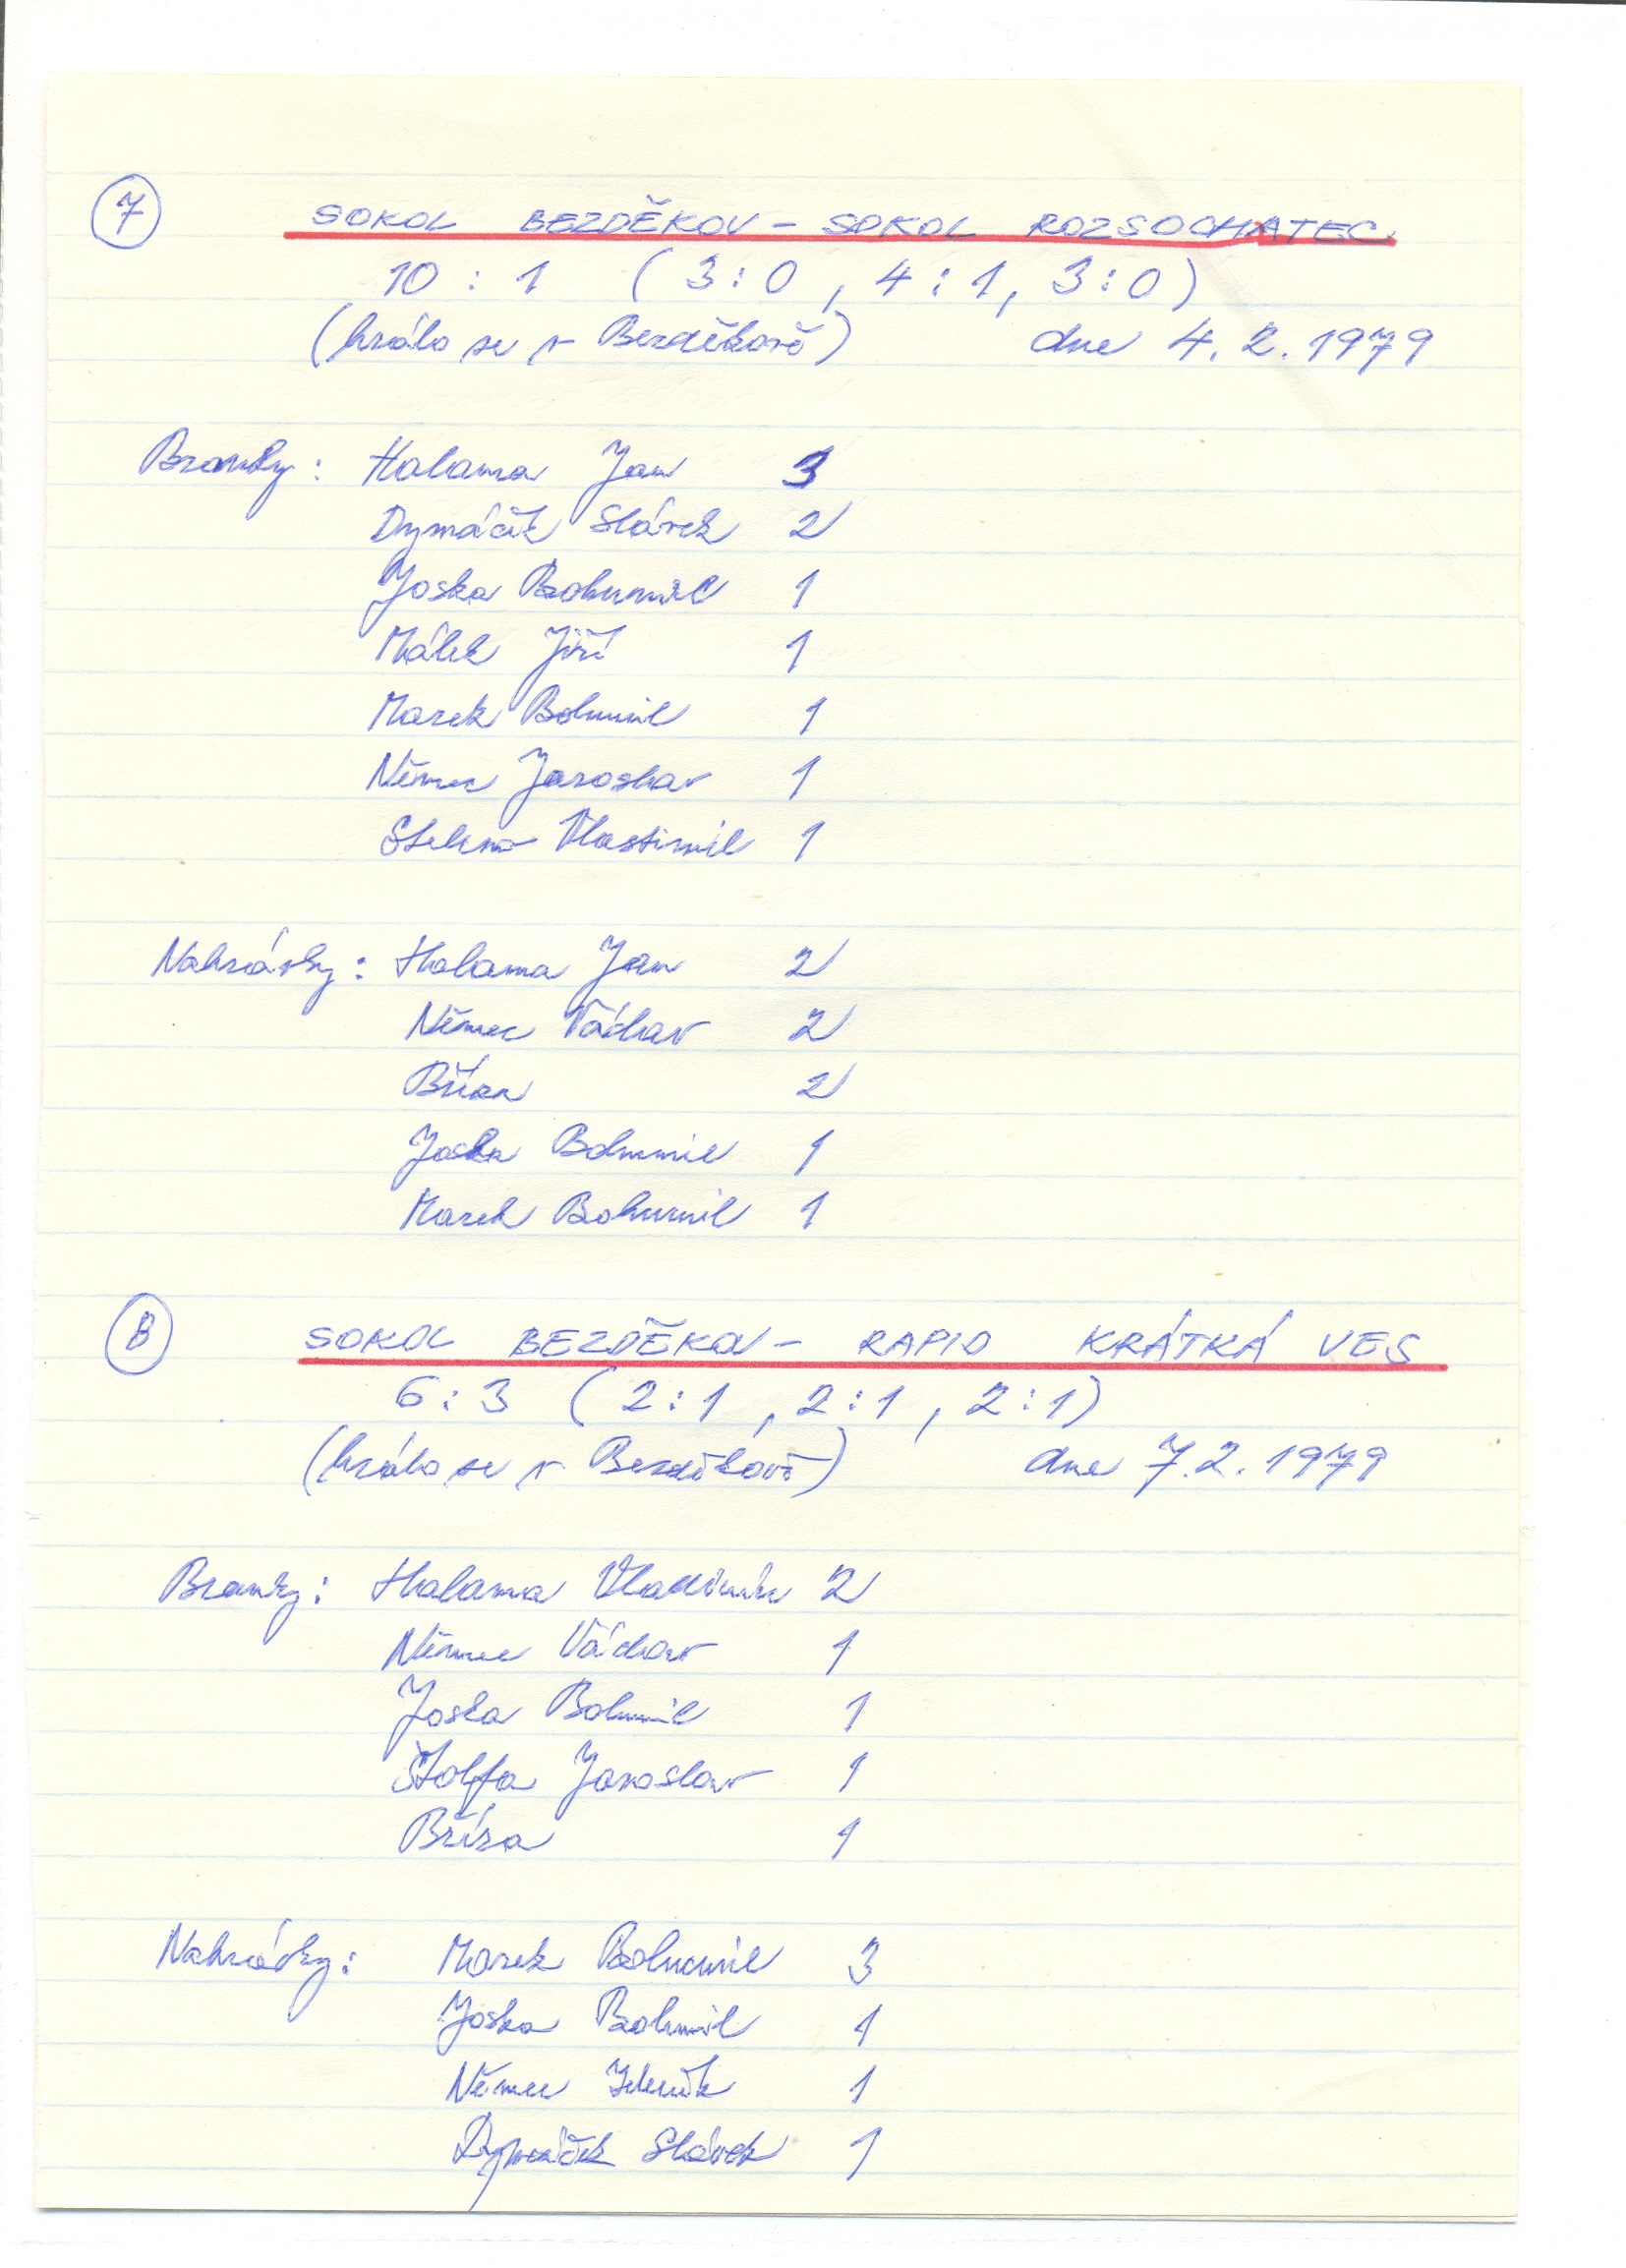 7 SOKOL BEZDĚKOV - SOKOL ROZSOCHATEC
10 : 1 ( 3 : 0 , 4 : 1 , 3 : 0 )
(hrálo se v Bezděkově) dne 4. 2. 1979
Branky : Halama Jan 3
Dymáček Slávek 2
Joska Bohumil 1
Málek Jiří 1
Marek Bohumil 1
Němec Jaroslav 1
Vlastimil 1
Nahrávky : Halama Jan 2
Němec Václav 2
2
Joska Bohumil 1
Marek Bohumil 1
8 SOKOL BEZDĚKOV - RAPID KRÁTKÁ VES
6 : 3 ( 2 : 1 , 2 : 1 , 2 : 1 )
(hrálo se v Bezděkově) dne 7. 2. 1979
Branky : Halama Vladimír 2
Němec Václav 1
Joska Bohumil 1
Štolfa Jaroslav 1
Bříza 1
Nahrávky : Marek Bohumil 3
Joska Bohumil 1
Němec Zdeněk 1
Dymáček Slávek 1